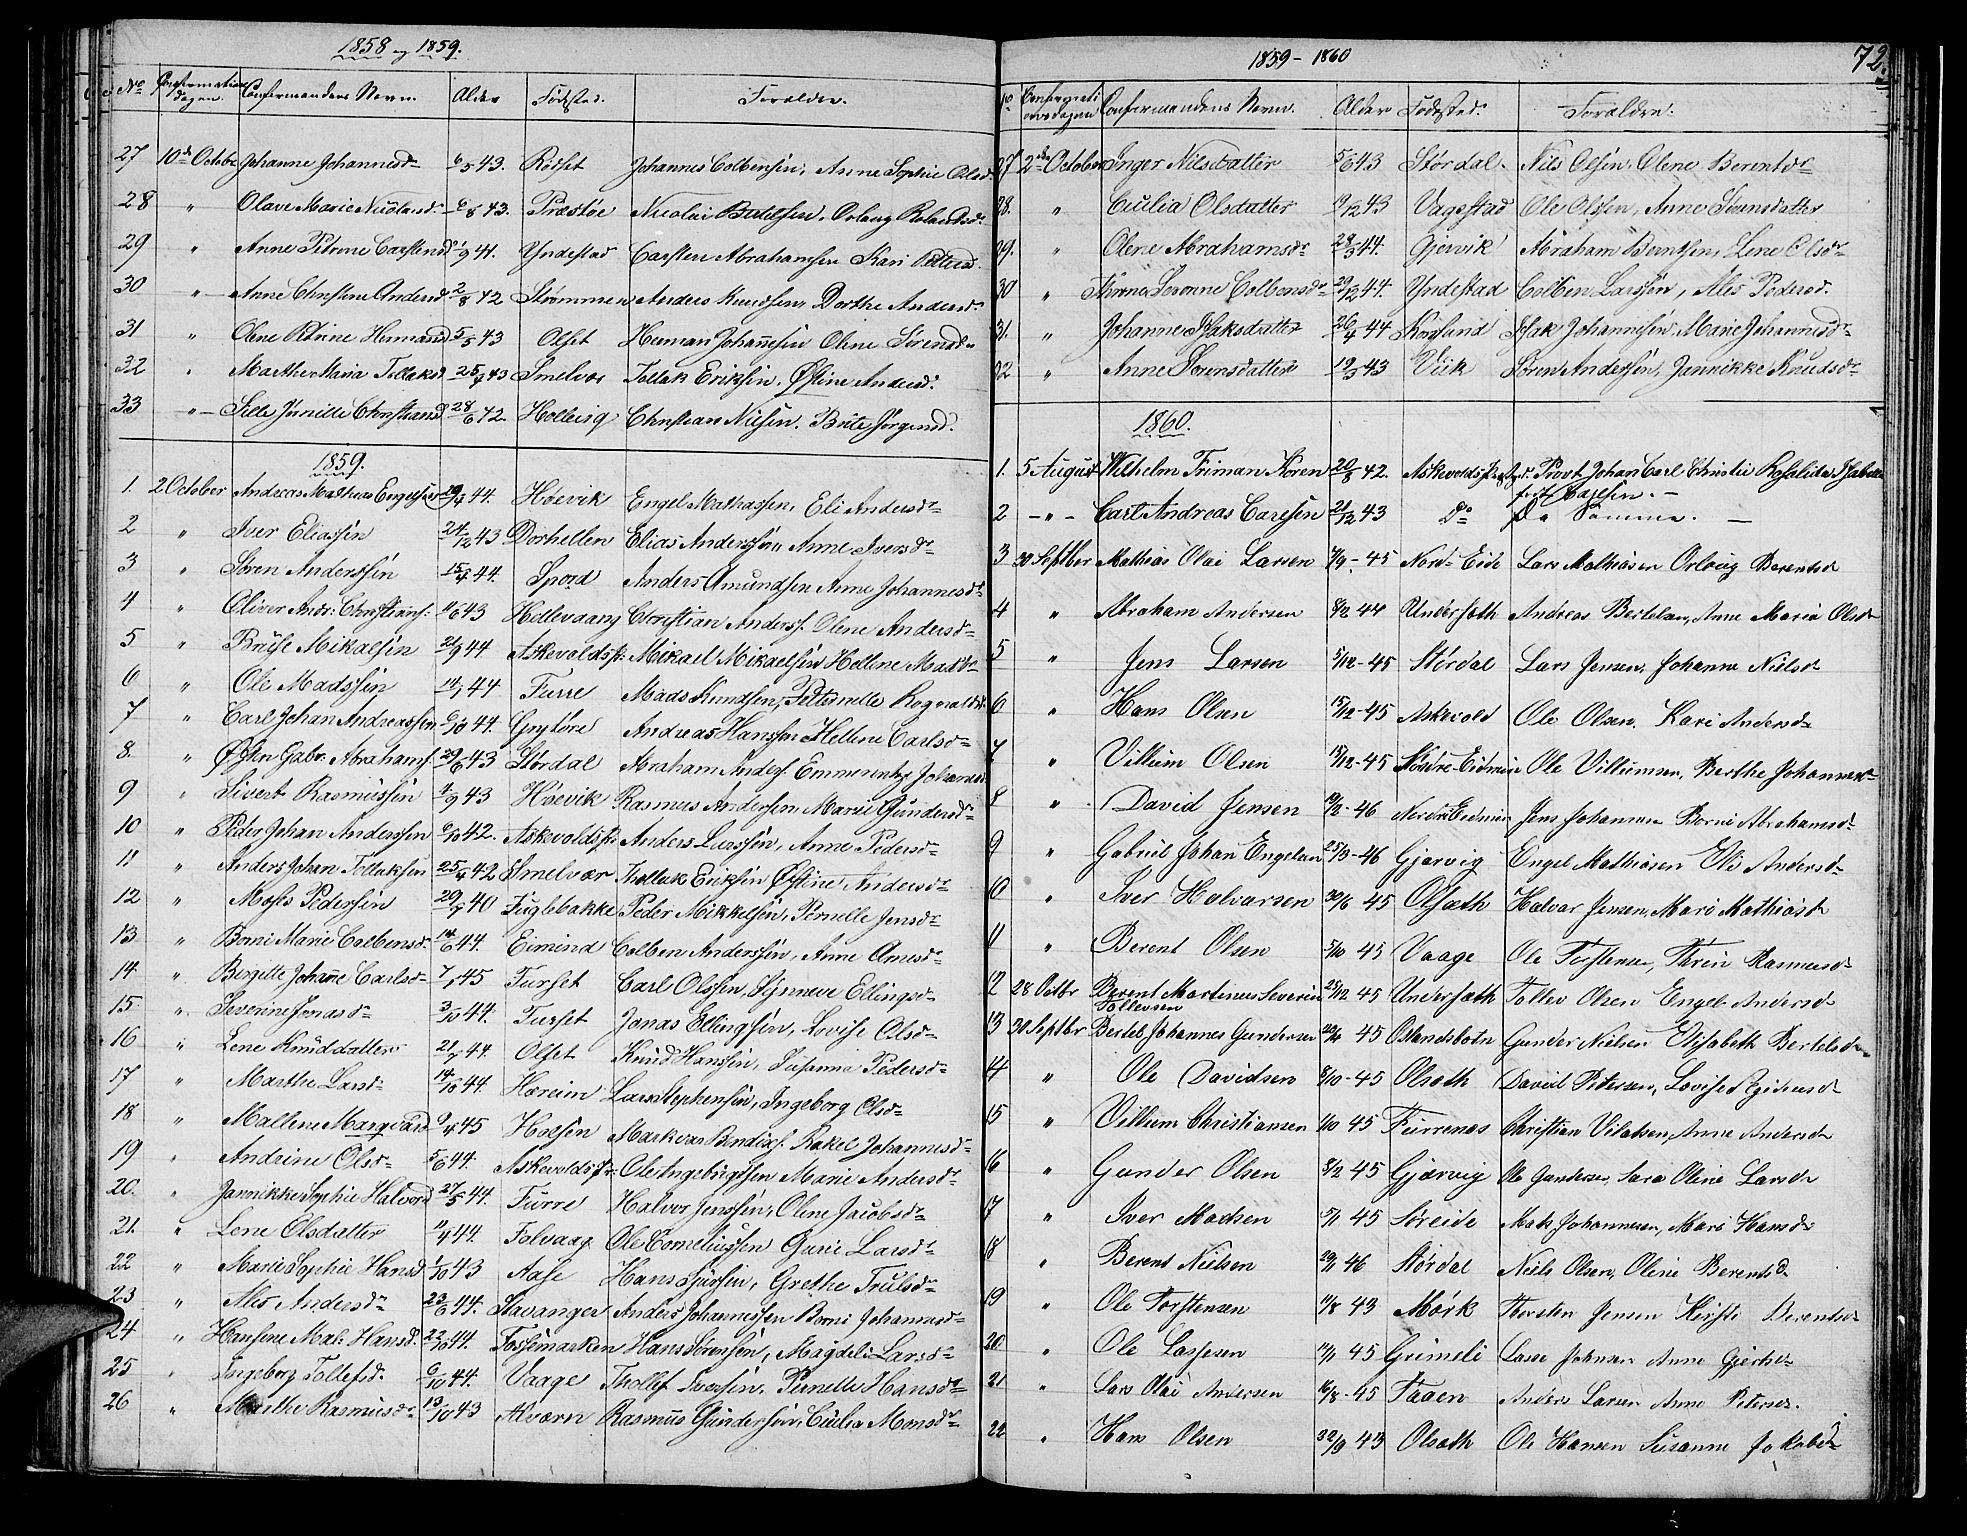 1858 og 1859.
No Confirmations dagen. Confirmandens Navn. Alder Fødested. Forældre.
27 10de Octobr Johanne Johannesdr 6/5 43. Røset Johannes Colbensen, Anne Sophie Olsd.
28 " Olave Marie Nicolaisd. 6/8 43. Præstøe Nicolai
29 " Anne Petrine Carstensd. 1/9 41. Yndestad Carsten Abrahamsen Kari
30 " Anne Christine Andersd 2/8 42 Strømmen Anders Knudsen, Dorthe Andersd.
31 " Oline Hermansd 5/5 43 Olset Herman Johannesen Oline Sørensdr
32 " Marthe Maria Tollaksd 25/7 43 Smelvær Tollak Eriksen. Østine Andersd.
33 " Christiansd 28/6 42. Christian Nilsen. Brite Jørgensd.
1859.
1. 2 October Andreas Mathias Engelsen 44. Høevik Engel Mathiassen, Eli Andersdr
2 " Iver Eliassen 24/12 43 Dorhellen Elias Anderssen, Anne Iversdr
3 " Søren Anderssen 15/4 44. Spord Anders Amundsen Anne Johannesdr
4 " Oliver Andr. Christians. 11/6 43 Hellevaang Christian Anderss. Olene Andersdr
5 " Mikalsen 21/9 44 Askevoldspr. Mikael Mikaelsen Hellene Madsdr
6 " Ole Madssen 14/7 44 Furre Mads Knudsen, Petternille Rognaldsdr
7 " Carl Johan Andreassen 6/10 44. Grytøre Andreas Hanssen Hellene Carlsdr
8. " Østen Gabr. Abrahams. 29/6 43 Stordal Abraham Anders. Emmerentze Johannesd
9 " Sivert Rasmussen 1/9 43 Høevik Rasmus Anderssen Marie Gundersdr
10 " Peder Johan Anderssen 6/10 42. Askevoldspr. Anders Larssen, Anne Pedersdr
11 " Anders Johan Tollaksen 25/4 42 Smelvær Thollak Eriksen Østine Andersdr
12 " Moses Pederssen 29/7 40 Fuglebakke Peder Mikkelsen, Pernille Jensdr
13 " Borni Marie Colbensd. 14/6 44. Eimind Colben Anderssen, Anne Amesdr
14 " Birgitte Johane Carlsdr 7/1 45 Furset Carl Olssen, Synneve Ellingsdr
15 " Severine Jonasdr 3/10 44. Furset Jonas Ellingsen, Lovise Olsdr
16 " Lene Knuddatter 21/7 44. Olset Knud Hanssen, Susanna Pedersdr
17 " Marthe Larsdr 14/10 44. Hæreim Lars Stephensen, Ingeborg Olsdr
18 " Mallene Marqvard 9/4 45 Holsen Markvar Bendixs. Rakel Johannesdr
19 " Andrine Olsdr 5/6 44. Askevoldspr. Ole Ingebrigtsen Marie Andersdr
20. " Jannikke Sophie Halvord 27/5 44. Furre Halvor Jenssen, Olene Jacobsdr
21. " Lene Olsdatter 11/4 44. Folvaag Ole Corneliussen Gurie Larsdr
22 " Marie Sophie Hansd. 1/10 43 Aase Hans Grethe Trulsdr
23 " Ales Andersdr 23/6 44. Stavanger Anders Johannessen Borni Johannesdr
24 " Hansine Mali Hansd. 22/10 44. Fossemarken Hans Sørensen, Magdeli Larsdr
25 " Ingeborg Tollefsd. 6/10 44. Vaage Thollef Iverssen. Pernelle Hansdr
26 " Marthe Rasmusdr 13/10 43 Alværn Rasmus Gunderssen, Cicilia Monsdr
1859 - 1860
72.
No Confirmationsdagen Confirmandens Navn. Alder Fødested. Forældre.
27 2den October Inger Nilsdatter 5/6 43 Stordal. Nils Olsen, Olene Berentsdr
28. " Cicilia Olsdatter 43 Vagestad Ole Olsen, Anne Sørensdatter
29. " Olene Abrahamsdr 28/3 44. Gjervik Abraham Berntsen, Lene Olsdr
30 " Severine Colbensdr 29/2 44. Yndestad Colben Larssen, Ales Pedersd.
31. " Johanne Isaksdatter 26/4 44 Korssund Isak Johannesen, Marie Johannesdr
32 " Anne Sørensdatter 19/3 43 Viik Søren Anderssen, Jannikke Knudsdr
1860.
1. 5 August Wilhelm Friman Koren 20/8 42. Askevolds Prstgd. Provst Johan Carl Christie Rosalide Isabelle
født Carlsen. -
2 - " - Carl Andreas Carlsen 21/12 43 Do Samme. -
3 30 Septbr Mathias Olai Larsen 4/9 - 45 Nord-Eide Lars Mathiasen Orloug Berentsd
4 " Abraham Andersen 8/2 44 Undersæth Andreas Bertelsen, Anne Maria Olsd
5 " Jens Larsen 5/12 - 45 Størdal Lars Jensen, Johanne Nielsd
6 " Hans Olsen 13/12 - 45 Askevold Ole Olsen. Kari Andersdr
7 " Villum Olsen 15/12 - 45 Nordre-Eidmin Ole Villumsen, Berthe Johannesdr
8 " David Jensen 9/2 - 46 Nordre Eidmin Jens Johansen Borni Abrahamsdr
9 " Gabriel Johan Engelsen 25/3 - 46 Gjærvig Engel Mathiasen Eli Andersdr
10 " Iver Halvarsen 30/6 45 Olsæth Halvar Jensen, Mari Mathiasd
11 " Berent Olsen 5/10 45 Vaage Ole Torstensen, Thrin Rasmusdr
12 28 Octbr Berent Martinus Severin 23/12 45 Undersæth Tollev Olsen Engel Andersd
Tollevsen
13 30 Septbr Bertel Johannes Gundersen 45 Ostandsbotn Gunder Nielsen Elisabeth Bertelsdr
14 " Ole Davidsen 8/10 - 45 Olsæth David Petersen, Lovise
15 " Villum Christiansen 1/10 45 Furrenas Christian Vilaksen, Anne Andersd
16 " Gunder Olsen 8/12 45 Gjærvig Ole Gundersen, Sara Oline Larsdr
17 " Iver Madsen 5/1 45 Søreide Mads Johannesen, Mari Hansdr
18 " Berent Nielsen 29/1 46 Størdal Niels Olsen, Oline Berentsd.
19 " Ole Torstensen 11/8 43 Mørk Thorsten Jensen Kirsti Berentsdr
20 " Ole Lassesen 14/1 45 Grimeli Lasse Johnsen Anne
21 " Lars Olai Andersen 16/8 - 45 Taaen Anders Larsen Anne
22 " Hans Olsen 22/9 43 Olsæth Ole Hansen Susanne Jakobsdr